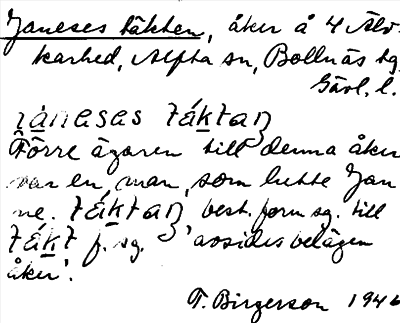 Janeses täkten, åker å 4 Älv-
karhed, Alfta sn, Bollnäs tg
Gävl. l.
jàneses ták̲taṇ
Förre ägaren till denna åker
var en man, som hette Jan
ne. ták̲taṇ best. form sg. till
ták̲t f. sg. 'avsides belägen
åker'.
T. Birgerson 1946